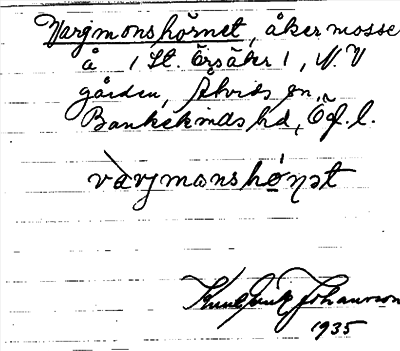 Vargmonshörnet, åkermosse
å 1 St. Örsäker 1, N. V
gården, Åtvids sn,
Bankekinds hd, Ög. l.
vàrjmonshó̱ṇət
Johansson
1935